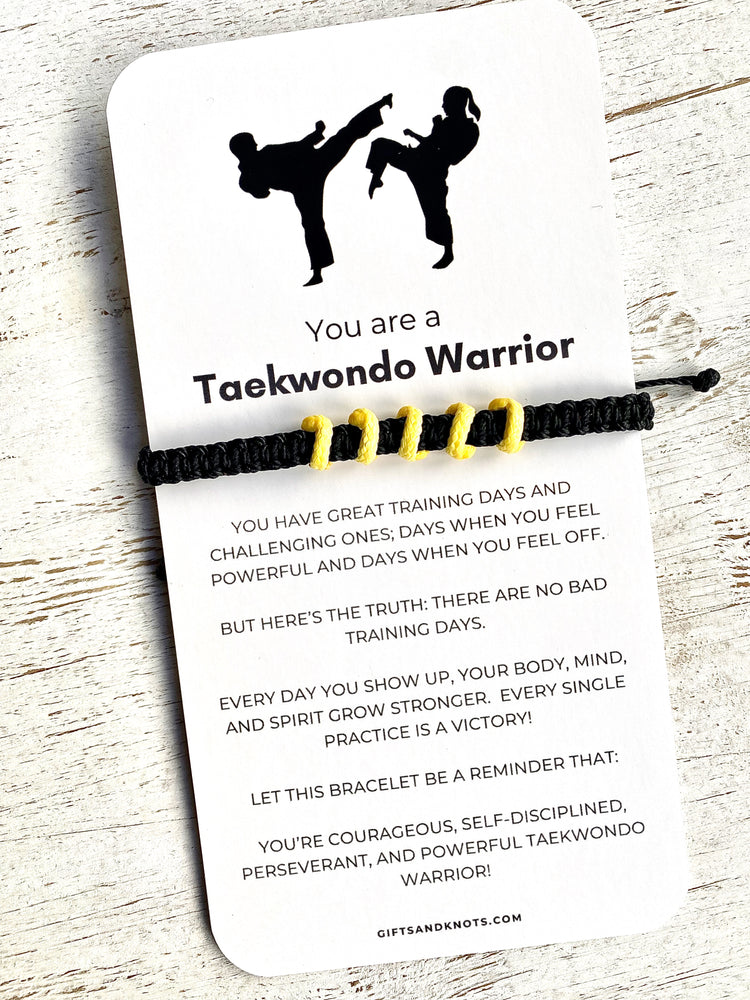 You are a
Taekwondo Warrior
YOU HAVE GREAT TRAINING DAYS AND
CHALLENGING ONES; DAYS WHEN YOU FEEL
POWERFUL AND DAYS WHEN YOU FEEL OFF.
BUT HERE'S THE TRUTH: THERE ARE NO BAD
TRAINING DAYS.
EVERY DAY YOU SHOW UP, YOUR BODY, MIND,
AND SPIRIT GROW STRONGER. EVERY SINGLE
PRACTICE IS A VICTORY!
LET THIS BRACELET BE A REMINDER THAT:
YOU'RE COURAGEOUS, SELF-DISCIPLINED,
PERSEVERANT, AND POWERFUL TAEKWONDO
WARRIOR!
GIFTSANDKNOTS.COM